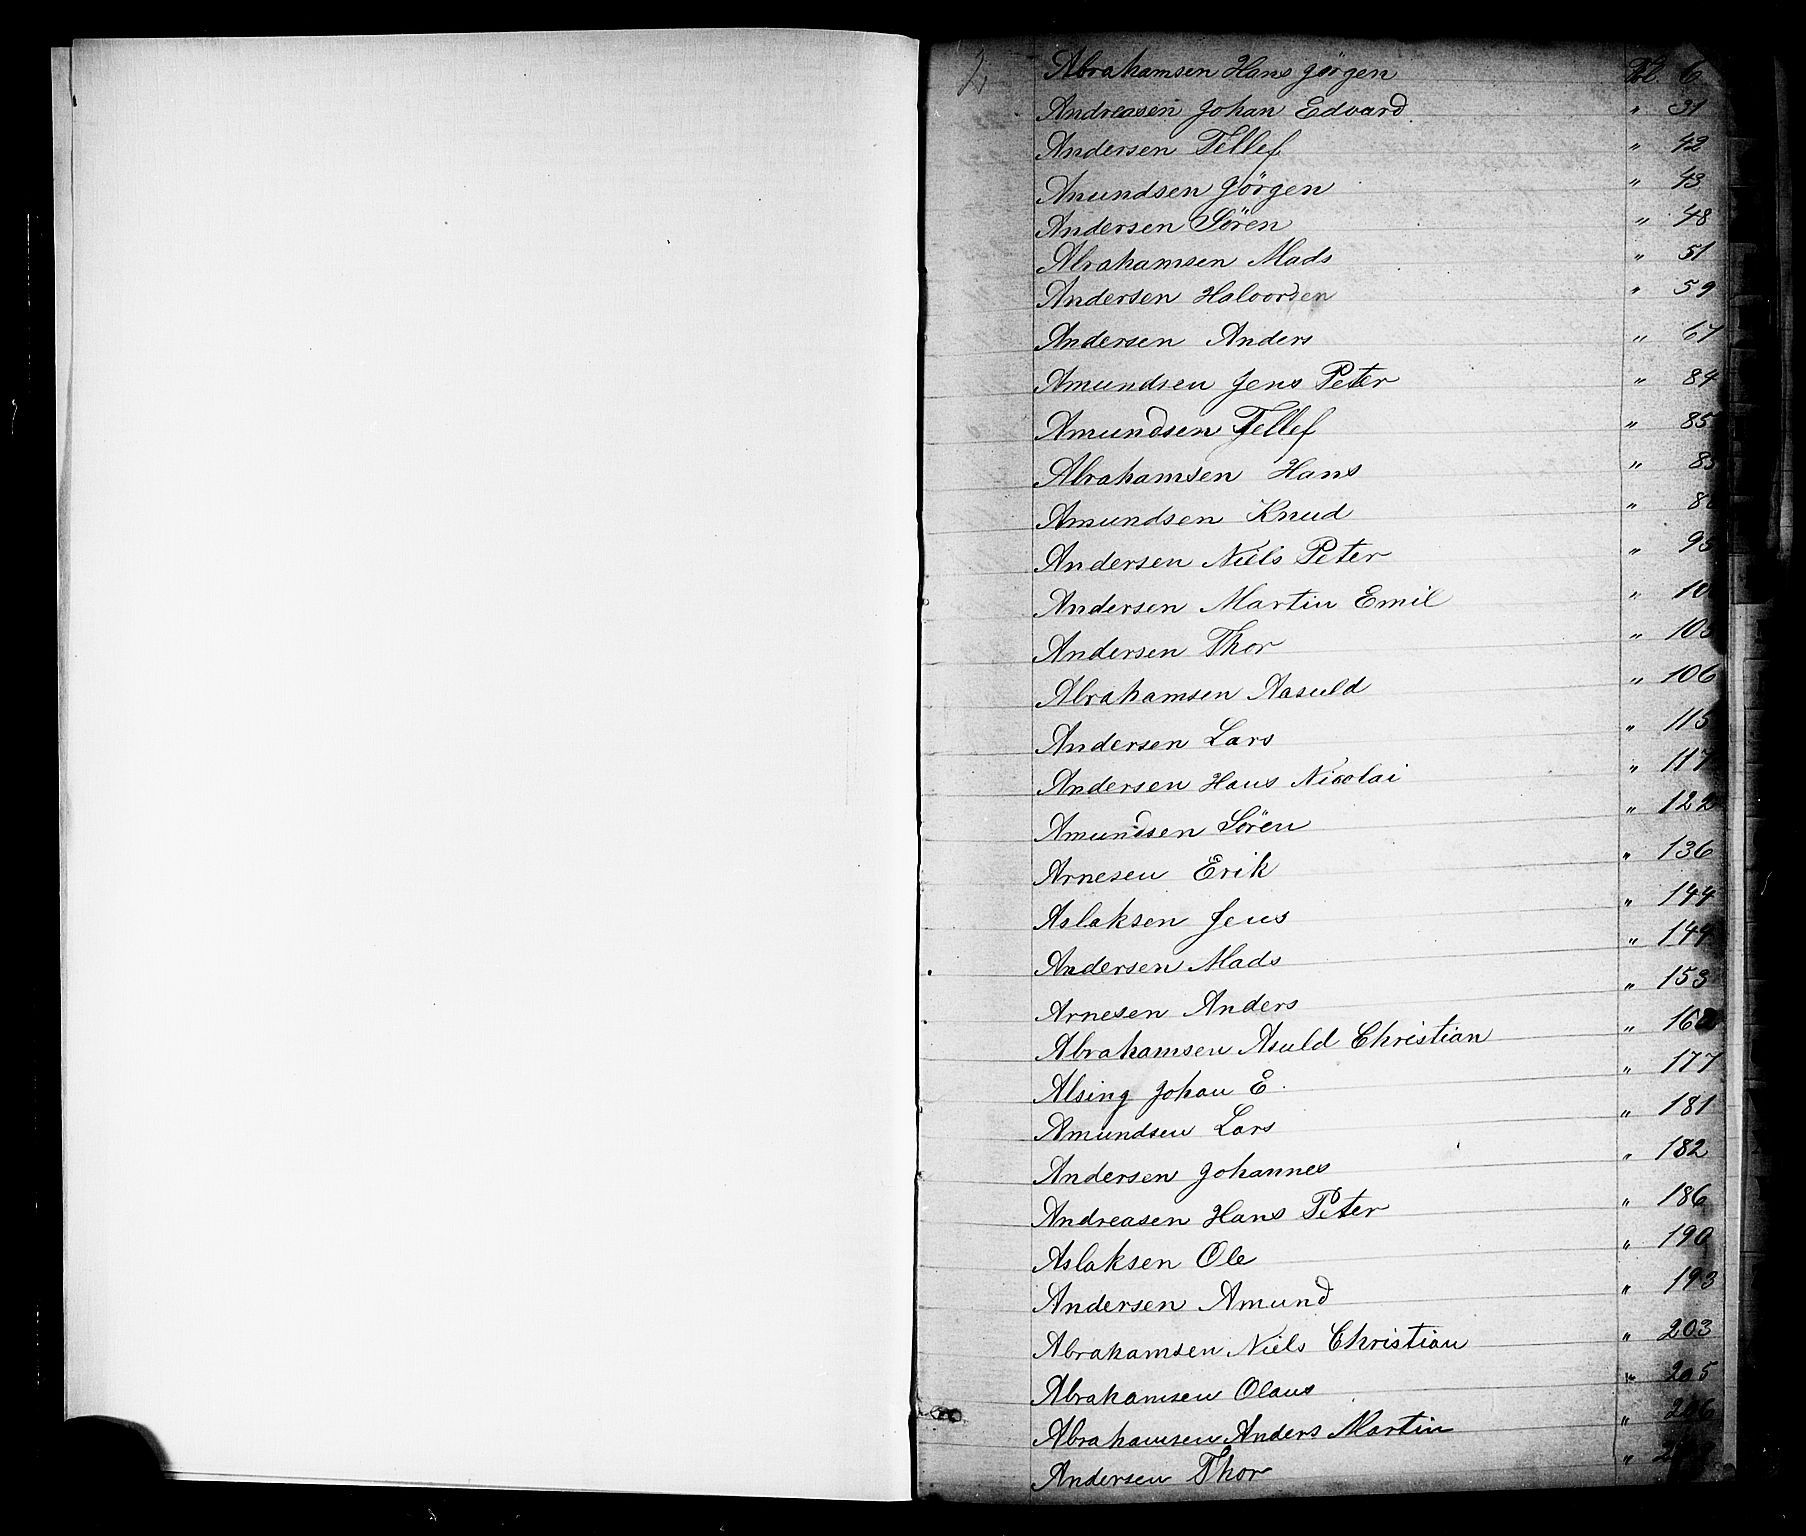 Abrahamsen Hans Jørgen Fol. 6
Andreasen Johan Edvard " 31
Andersen Tellef " 42
Amundsen Jörgen " 43
Andersen Sören " 48
Abrahamsen Mads " 51
Andersen Halvorsen " 59
Andersen Anders " 67
Amundsen Jens Peter " 84
Amundsen Tellef " 85
Abrahamsen Hans "
Amundsen Knud "
Andersen Niels Peter "
Andersen Martin Emil "
Andersen Thor "
Abrahamsen Aasuld " 106
Andersen Lars " 115
Andersen Hans Nicolai " 117
Amundsen Sören " 122
Arnesen Erik " 136
Aslaksen Jens " 144
Andersen Mads "
Arnesen Anders " 153
Abrahamsen Asuld Christian "
Alsing Johan E. " 177
Amundsen Lars " 181
Andersen Johannes " 182
Andreasen Hans Peter " 186
Aslaksen Ole " 190
Andersen Amund " 193
Abrahamsen Niels Christian " 203
Abrahamsen Olaus " 205
Abrahamsen Anders Martin " 206
Andersen Thor "